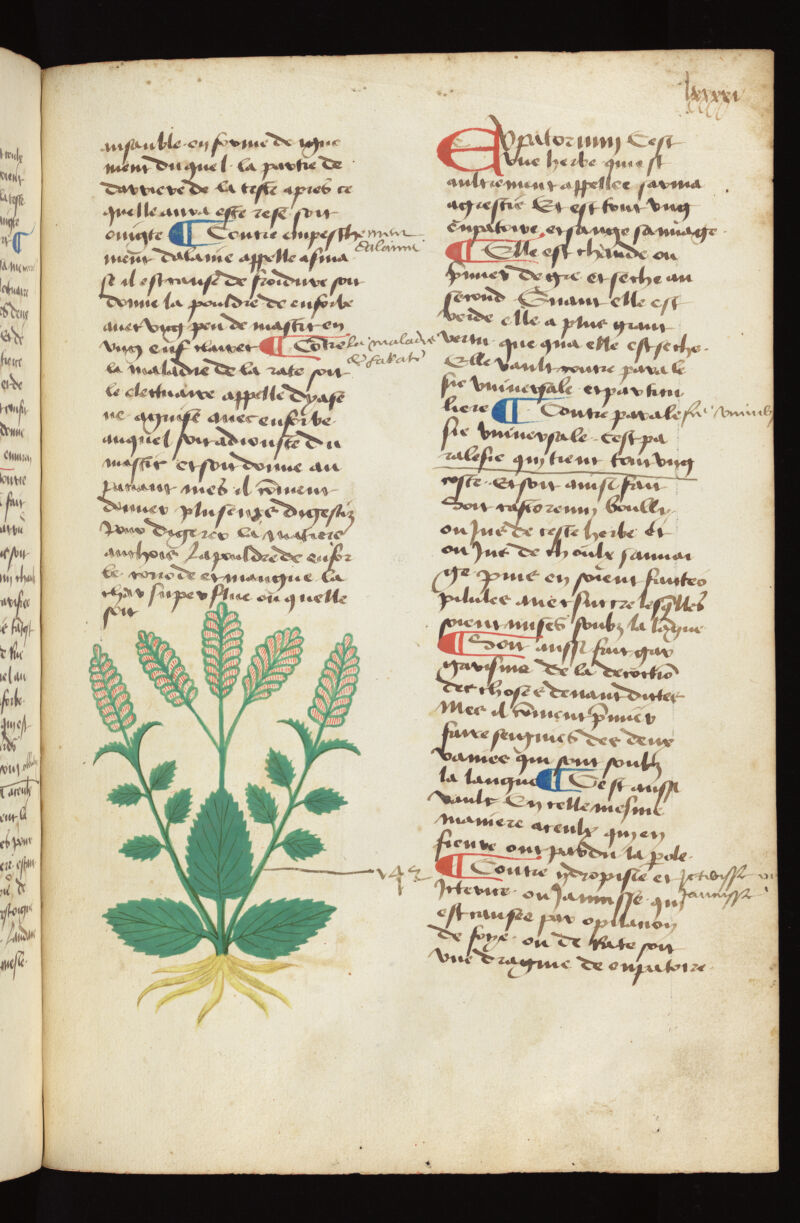 lxxxxi
uisauble. en forme de igne
ment du quel. la partie de
darriere de la teste apres ce
quelle aura este rese soit
oingte ¶ Contre empesche
ment dalaine appelle asma
se il est cause de froidure soit
donne la pouldre de euforbe
auec vng peu de mastic en
vng euf cluiet ¶ Cōtre
la maladie de la rate soit
le clectuaire appelle dyase
ne. aguise auec euforbe.
auquel soit adiouste du
mastic et soit donne au
paciant mes il cōuient
donner pluseurs digestiz
pour digerer la matiere
anchois la pouldre de eufor
be. corode et mangue. la
char superflue ou quelle
soit
Evpatorium Cest
vne herbe qui est
aultrement appellee sarma
agrestie Et est tout vng
eupatoire. et sauge sauuage.
¶ Elle est chaude ou
p̄mier degre et seche au
second. Quant elle est
verde elle a plus grant
vertu. que qua elle est seche.
Elle vault contre parale
sie vniuersale. et particu
liere ¶ Contre parale
sie vniuersale. cest pa
ralesie qui tient tout vng
coste. Et soit ainsi fait
Soit castoreum boully.
ou Jus de ceste herbe et
ou Jus de choulx sauuai
ge puis en soient faictes
pilules auec succre lesq̄lles
soient mises soubz la lāgue
¶ Soit aussi fait gar
garisme de la decoctiō
des choses deuant dictes
Mes il cōuient p̄mier
faire seignies des deux
vaines qui sont soubz
la langue ¶ Cest aussi
vault En celle mesme
maniere aceulx qui en
fieure ont pardu la pole.
¶ Contre ydropisie et
Jcterice. ou Jaunisse. qui
est causee par opilacion
de foye. ou de Rate soit
vne dragme de eupatoire.
ment
dalaine
la maladie
de la rate
sie vniuers
Jcterisse ou
Jaunisse
142